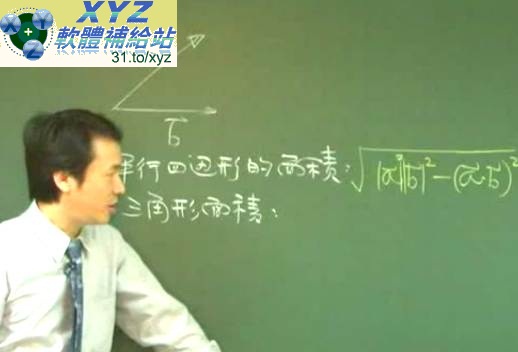 XYZ
軟體補給站
31.to/xyz
b⃗
平行四边形的面積:√|a⃗|²|b⃗|²-(a⃗·b⃗)²
三角形面積: